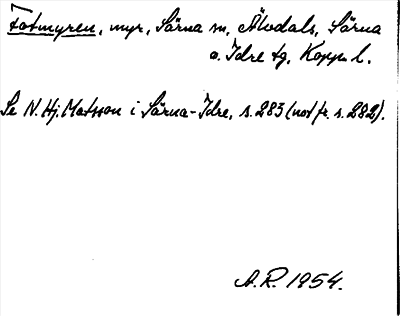 Fotmyren, myr, Särna sn, Älvdals, Särna
o. Idre tg, Kopp. l.
Se N. Hj. Matsson i Särna-Idre, s. 283 (not fr. s. 282).
A. R. 1954.